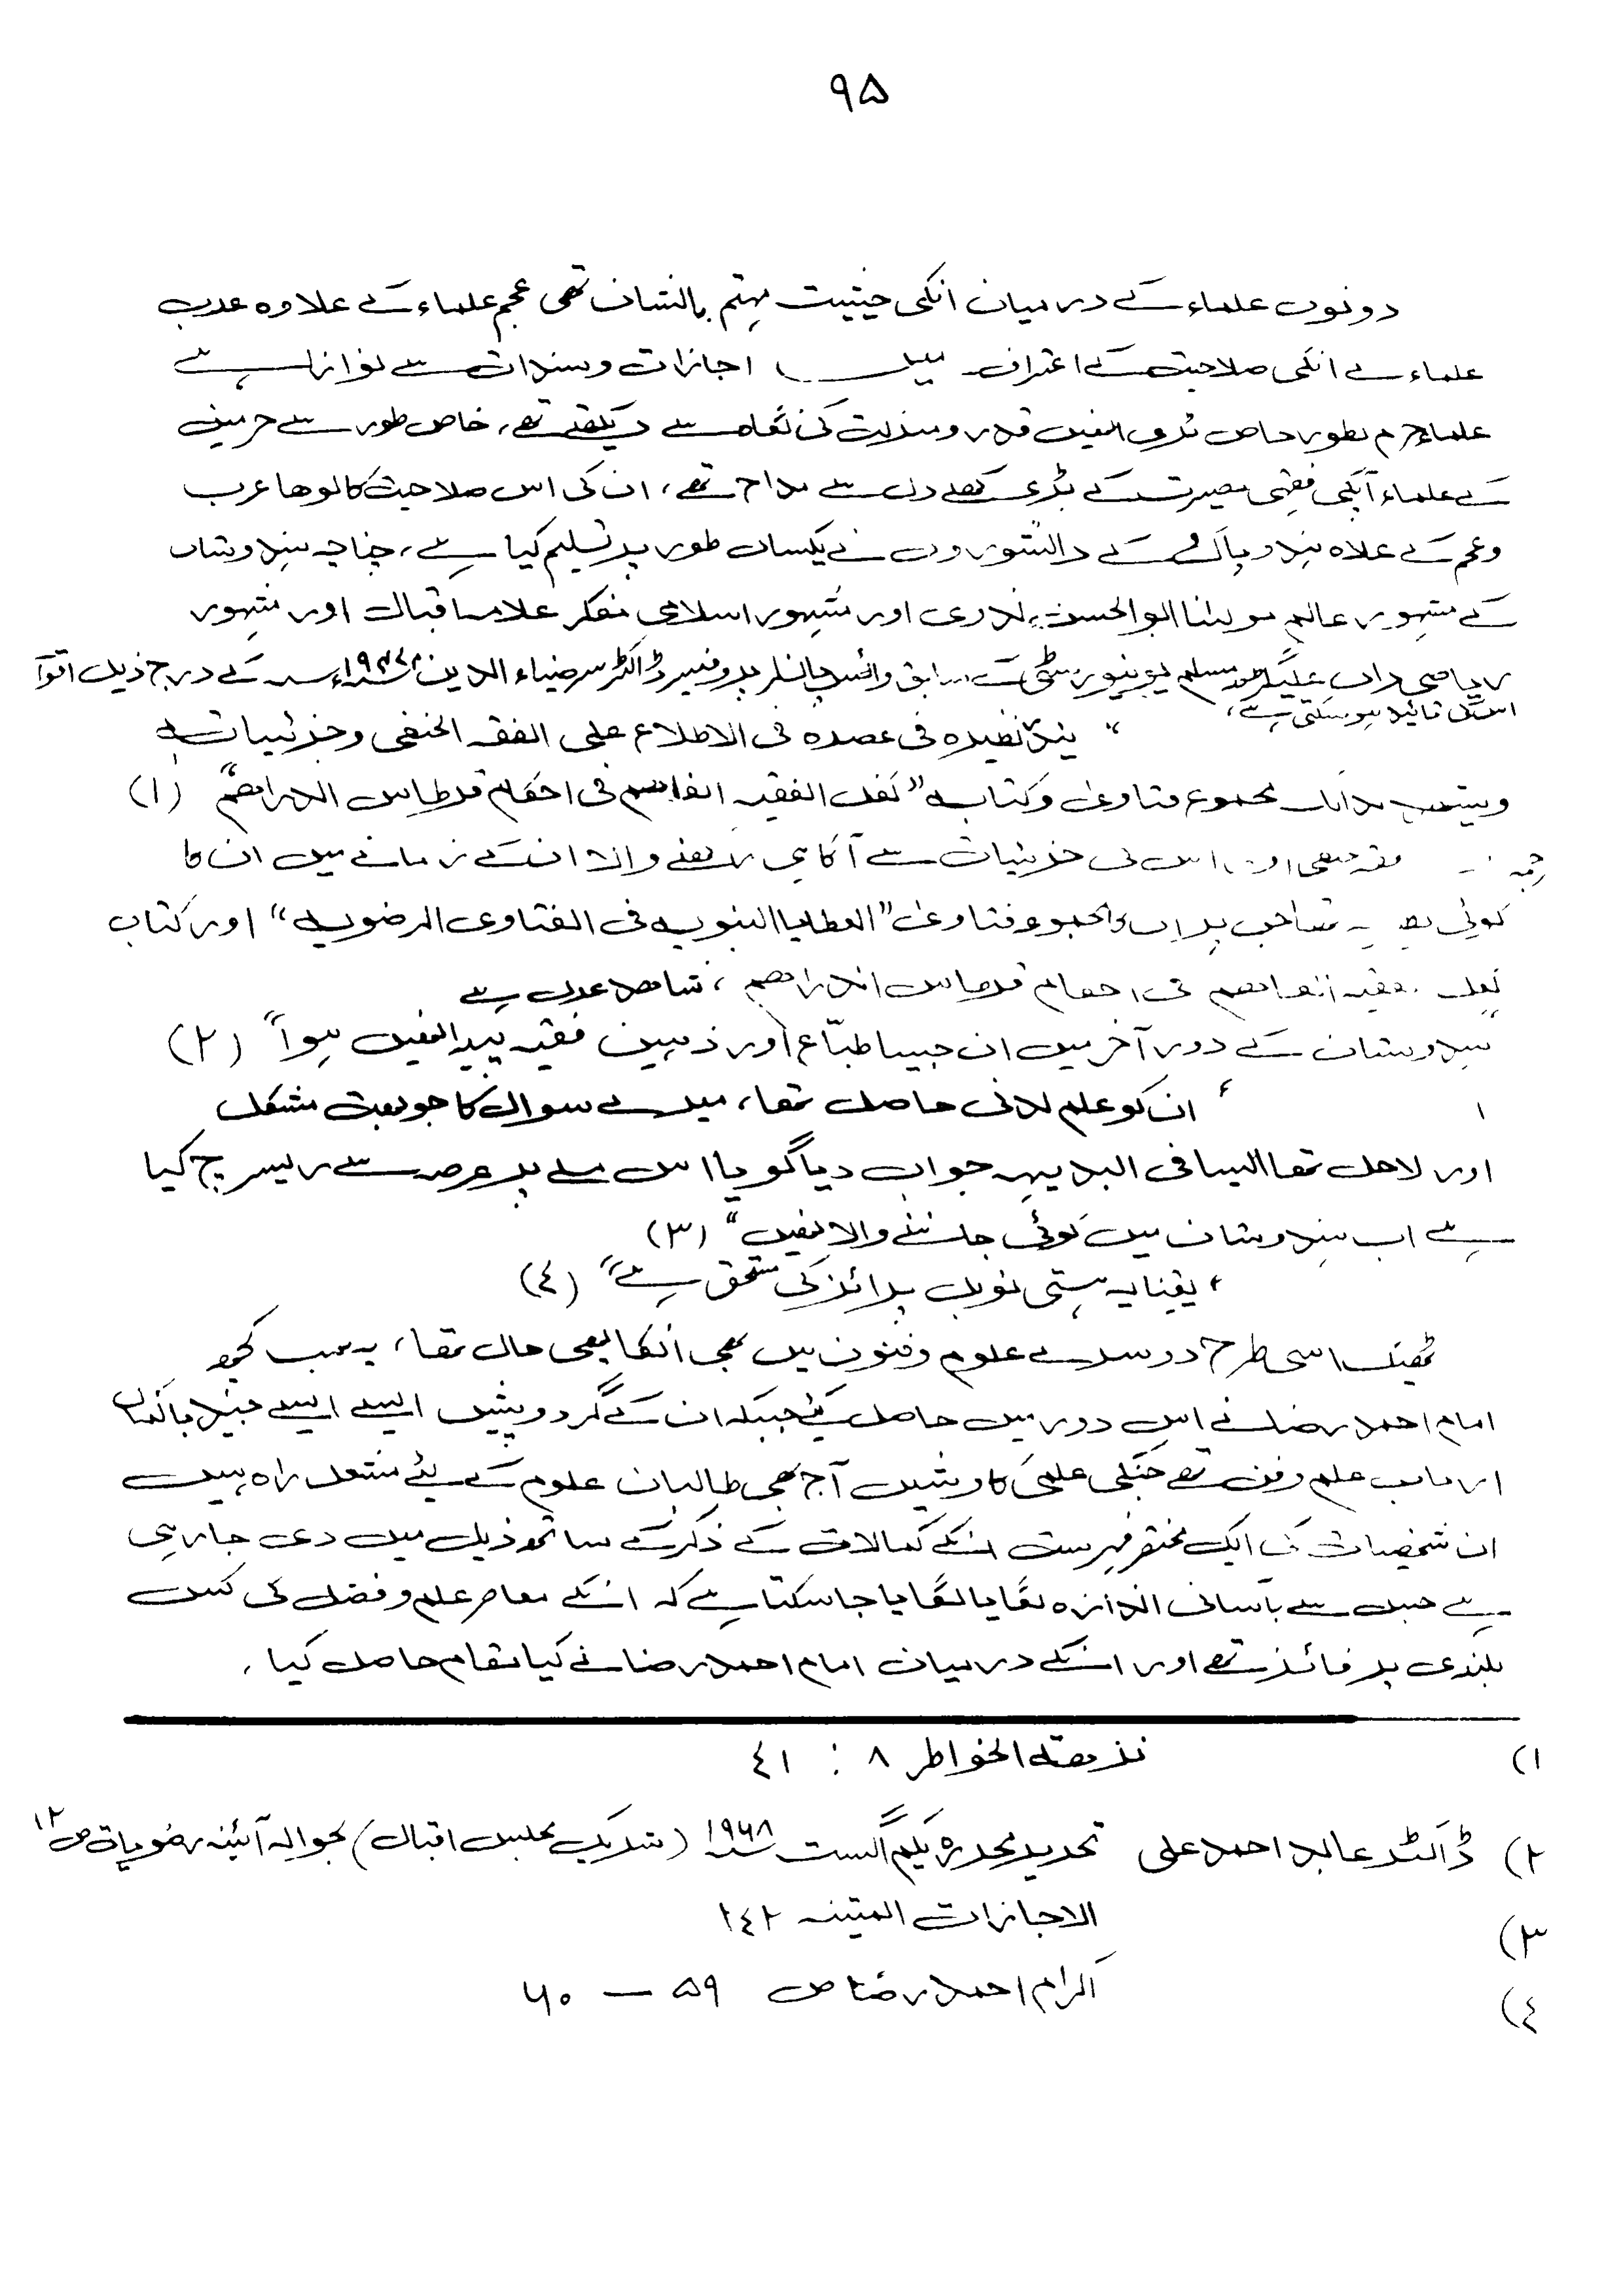 ۹۵
دونوں علماء کے درمیان انکی حیثیت مہتم بالشان تھی عجم علماء کے علاوہ عرب
علماء نے انکی صلاحیت کے اعتراف میں اجازات و سندات سے نوازا ہے
علماء حرم بطور خاص انھیں قدر و منزلت کی نگاہ سے دیکھتے تھے، خاص طور سے حرمین
کے علماء آپکی فقہی بصیرت کے بڑی کھلے دل سے مداح تھے، ان کی اس صلاحیت کا لوھا عرب
و عجم کے علاہ ہند و پاک کے دانشوروں نے یکساں طور پر تسلیم کیا ہے، چناچہ ہندوستان
کے مشہور عالم مولانا ابو الحسن ندوی اور مشہور اسلامی مفکر علامہ اقبال اور مشہور
ریاضی داں علیگڑھ مسلم یونیورسٹی کے سابق وائس چانسلر پروفیسر ڈاکٹر سر ضیاء الدین کے درج ذیل اقوا
اسکی تائید ہو سکتی ہے،
" یندر نظیرہ فی عصرہ فی الاطلاع علی الفقہ الحنفی و جزئیاتہ
ویشھد بذالک مجموع فتاویٰ و کتابہ "کفل الفقیہ الفاھم فی احکام قرطاس الدراھم" (۱)
ترجمہ :- فقہ حنفی اور اس کی جزئیات سے آگاہی رکھنے والا ان کے زمانے میں ان کا
کوئی نظیر نہ تھا جس پر ان کا مجموعہ فتاویٰ "العطایا النبویہ فی الفتاوی الرضویہ" اور کتاب
کفل الفقیہ الفاھم فی احکام قرطاس الدراھم، شاھد عدل ہے
"ہندوستان کے دور آخر میں ان جیسا طبّاع اور ذہین فقیہ پیدا نھیں ہوا" (۲)
ان کو علم لدنی حاصل تھا، میرے سوال کا جو بہت مشکل
اور لاحل تھا ایسا فی البدیہہ جواب دیا گویا اس مسئلے پر عرصہ سے ریسرچ کیا
ہے اب ہندوستان میں کوئی جاننے والا نھیں" (۳)
"یقینا یہ ہستی نوبل پرائز کی مستحق ہے" (٤)
ٹھیک اسی طرح دوسرے علوم و فنون میں بھی انکا یھی حال تھا، یہ سب کچھ
امام احمد رضا نے اس دور میں حاصل کیئے جبکہ ان کے گرد و پیش ایسے ایسے جید باکمال
ارباب علم و فن تھے جنکی علمی کاوشیں آج بھی طالبان علوم کے لیئے مشعل راہ ہیں
ان شخصیات کی ایک مختصر فہرست انکے کمالات کے ذکر کے ساتھ ذیل میں دی جا رہی
ہے جس سے بآسانی اندازہ لگایا لگایا جا سکتا ہے کہ انکے معاصر علم و فضل کی کس
بلندی پر فائز تھے اور انکے درمیان امام احمد رضا نے کیا مقام حاصل کیا،
۱) نزھۃ الخواطر ۸ : ٤۱
۲) ڈاکٹر عابد احمد علی تحریر محررہ یکم اگست ۱۹۶۸ (شریک مجلس اقبال) بحوالہ آئینہ رضویات ص ۱۲
۳) الاجازات المتینہ
٤) اکرام احمد رضا ص ۵۹ – ۶۰